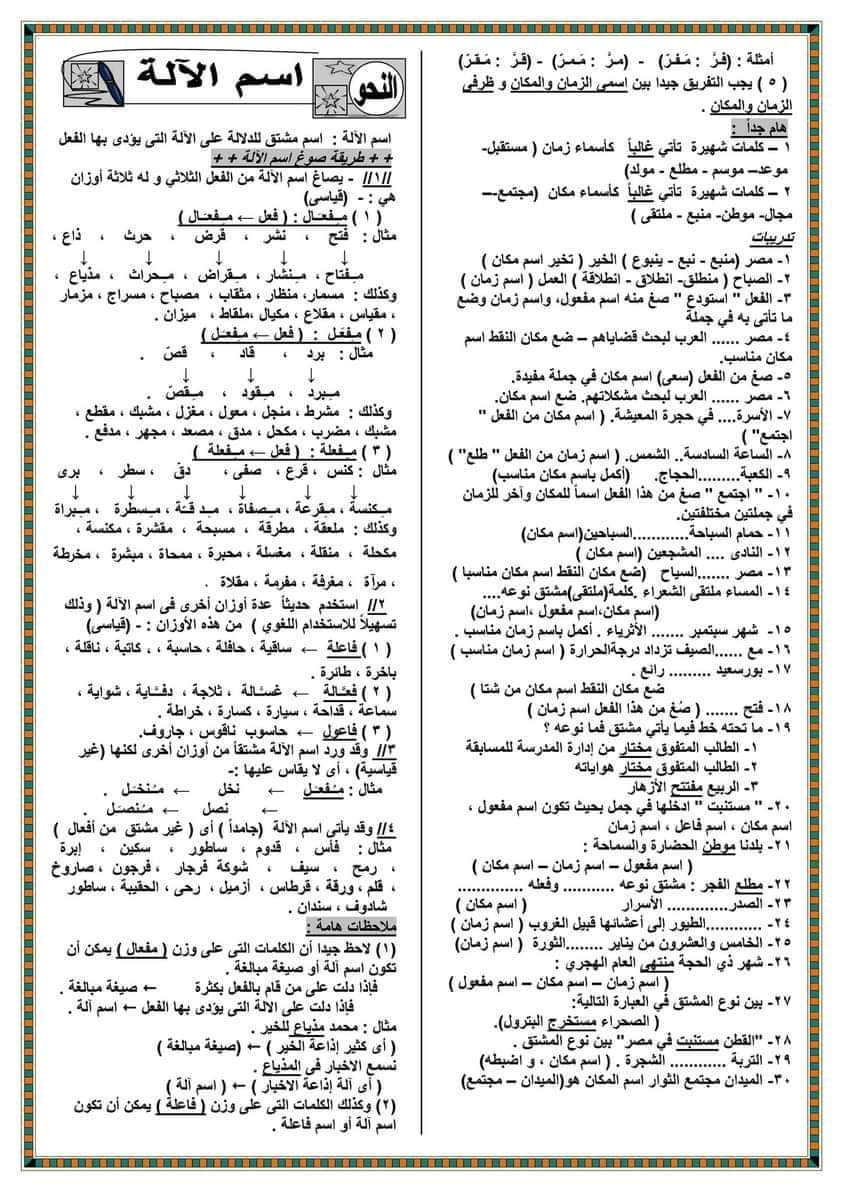 أمثلة : (فرَّ : مَـفـرّ) - (مرَّ : مَـمرّ) - (قرَّ : مَـقـرّ)
( ٥ ) يجب التفريق جيدا بين اسمى الزمان والمكان و ظرفى
الزمان والمكان .
هام جداً :
١ – كلمات شهيرة تأتي غالباً كأسماء زمان ( مستقبل-
موعد– موسم - مطلع - مولد)
٢ – كلمات شهيرة تأتي غالباً كأسماء مكان (مجتمع-–
مجال- موطن- منبع - ملتقى )
تدريبات
١- مصر (منبع - نبع - ينبوع ) الخير ( تخير اسم مكان )
٢- الصباح ( منطلق- انطلاق - انطلاقة ) العمل ( اسم زمان )
٣- الفعل " استودع " صغ منه اسم مفعول، واسم زمان وضع
ما تأتى به في جملة
٤- مصر ...... العرب لبحث قضاياهم – ضع مكان النقط اسم
مكان مناسب.
٥- صغ من الفعل (سعى) اسم مكان في جملة مفيدة.
٦- مصر ...... العرب لبحث مشكلاتهم. ضع اسم مكان.
٧- الأسرة.... في حجرة المعيشة. ( اسم مكان من الفعل "
اجتمع" )
٨- الساعة السادسة.. الشمس. ( اسم زمان من الفعل " طلع" )
٩- الكعبة.........الحجاج. (أكمل باسم مكان مناسب)
١٠- " اجتمع " صغ من هذا الفعل اسماً للمكان وآخر للزمان
في جملتين مختلفتين.
١١- حمام السباحة............السباحين(اسم مكان)
١٢- النادى .... المشجعين (اسم مكان )
١٣- مصر .......السياح (ضع مكان النقط اسم مكان مناسبا )
١٤- المساء ملتقى الشعراء .كلمة(ملتقى)مشتق نوعه....
(اسم مكان،اسم مفعول ،اسم زمان)
١٥- شهر سبتمبر ....... الأثرياء . أكمل باسم زمان مناسب .
١٦- مع ......الصيف تزداد درجةالحرارة ( اسم زمان مناسب )
١٧- بورسعيد ......... رائع .
ضع مكان النقط اسم مكان من شتا )
١٨- فتح ....... ( صُغ من هذا الفعل اسم زمان )
١٩- ما تحته خط فيما يأتي مشتق فما نوعه ؟
١- الطالب المتفوق مختار من إدارة المدرسة للمسابقة
٢- الطالب المتفوق مختار هواياته
٣- الربيع مفتتح الأزهار
٢٠- " مستنبت " ادخلها في جمل بحيث تكون اسم مفعول ،
اسم مكان ، اسم فاعل ، اسم زمان
٢١- بلدنا موطن الحضارة والسماحة :
( اسم مفعول – اسم زمان – اسم مكان )
٢٢- مطلع الفجر : مشتق نوعه ........... وفعله ..............
٢٣- الصدر.............. الأسرار ( اسم مكان )
٢٤- ............الطيور إلى أعشائها قبيل الغروب ( اسم زمان )
٢٥- الخامس والعشرون من يناير ........الثورة ( اسم زمان)
٢٦- شهر ذي الحجة منتهى العام الهجري :
( اسم زمان – اسم مكان – اسم مفعول )
٢٧- بين نوع المشتق في العبارة التالية:
( الصحراء مستخرج البترول).
٢٨- "القطن مستنبت في مصر" بين نوع المشتق .
٢٩- التربة ............ الشجرة . ( اسم مكان ، و اضبطه)
٣٠- الميدان مجتمع الثوار اسم المكان هو(الميدان – مجتمع)
النحو
اسم الآلة
اسم الآلة : اسم مشتق للدلالة على الآلة التى يؤدى بها الفعل
+ + طريقة صوغ اسم الآلة + +
//١// - يصاغ اسم الآلة من الفعل الثلاثي و له ثلاثة أوزان
هي : - (قياسى)
( ١ ) مـِفـعـَال : ( فعل ← مـِفـعـَال )
مثال : فتح ، نشر ، قرض ، حرث ، ذاع ،
↓ ↓ ↓ ↓ ↓
مـِفتاح ، مـِنشار ، مـِقراض ، مـِحراث ، مذياع ،
وكذلك : مسمار، منظار ، مثقاب ، مصباح ، مسراج ، مزمار
، مقياس ، مقلاع ، مكيال ،ملقاط ، ميزان .
( ٢ ) مـِفعَـل : ( فعل ← مـِفعَـل )
مثال : برد ، قاد ، قصّ .
↓ ↓ ↓
مـِبرد ، مـِقود ، مـِقصّ .
وكذلك : مشرط ، منجل ، معول ، مغزل ، مشبك ، مقطع ،
مشبك ، مضرب ، مكحل ، مدق ، مصعد ، مجهر ، مدفع .
( ٣ ) مـِفعلة : ( فعل ← مـِفعلة )
مثال : كنس ، قرع ، صفى ، دقّ ، سطر ، برى
↓ ↓ ↓ ↓ ↓ ↓
مـِكنسة ، مـِقرعة ، مـِصفاة ، مـِدقـَّة ، مـِسطرة ، مـِبراة
وكذلك : ملعقة ، مطرقة ، مسبحة ، مقشرة ، مكنسة ،
مكحلة ، منقلة ، مغسلة ، محبرة ، ممحاة ، مبشرة ، مخرطة
، مرآة ، مغرفة ، مفرمة ، مقلاة .
//٢ استخدم حديثاً عدة أوزان أخرى فى اسم الآلة ( وذلك
تسهيلاً للاستخدام اللغوي ) من هذه الأوزان : - (قياسى)
( ١ ) فاعلة ← ساقية ، حافلة ، حاسبة ، ، كاتبة ، ناقلة ،
باخرة ، طائرة .
( ٢ ) فعَّـالة ← غسـَّالة ، ثلاجة ، دفـَّاية ، شواية ،
سماعة ، قداحة ، سيارة ، كسارة ، خراطة .
( ٣ ) فاعول ← حاسوب ناقوس ، جاروف.
//٣ وقد ورد اسم الآلة مشتقاً من أوزان أخرى لكنها (غير
قياسية) ، أى لا يقاس عليها :-
مثال : مـُفعـَل ← نخل ← مـُنخـَل .
← نصل ← مـُنصـَل .
//٤ وقد يأتى اسم الآلة (جامداً ) أى ( غير مشتق من أفعال )
مثال : فأس ، قدوم ، ساطور ، سكين ، إبرة
، رمح ، سيف ، شوكة فرجار ، فرجون ، صاروخ
، قلم ، ورقة ، قرطاس ، أزميل ، رحى ، الحقيبة ، ساطور
شادوف ، سندان .
ملاحظات هامة :
(١) لاحظ جيدا أن الكلمات التى على وزن ( مفعال ) يمكن أن
تكون اسم آلة أو صيغة مبالغة .
فإذا دلت على من قام بالفعل بكثرة ← صيغة مبالغة .
فإذا دلت على الالة التى يؤدى بها الفعل ← اسم آلة .
مثال : محمد مذياع للخير .
( أى كثير إذاعة الخير ) ← (صيغة مبالغة )
نسمع الاخبار فى المذياع .
( أى آلة إذاعة الاخبار ) ← ( اسم آلة )
(٢) وكذلك الكلمات التى على وزن ( فاعلة ) يمكن أن تكون
اسم آلة أو اسم فاعلة .